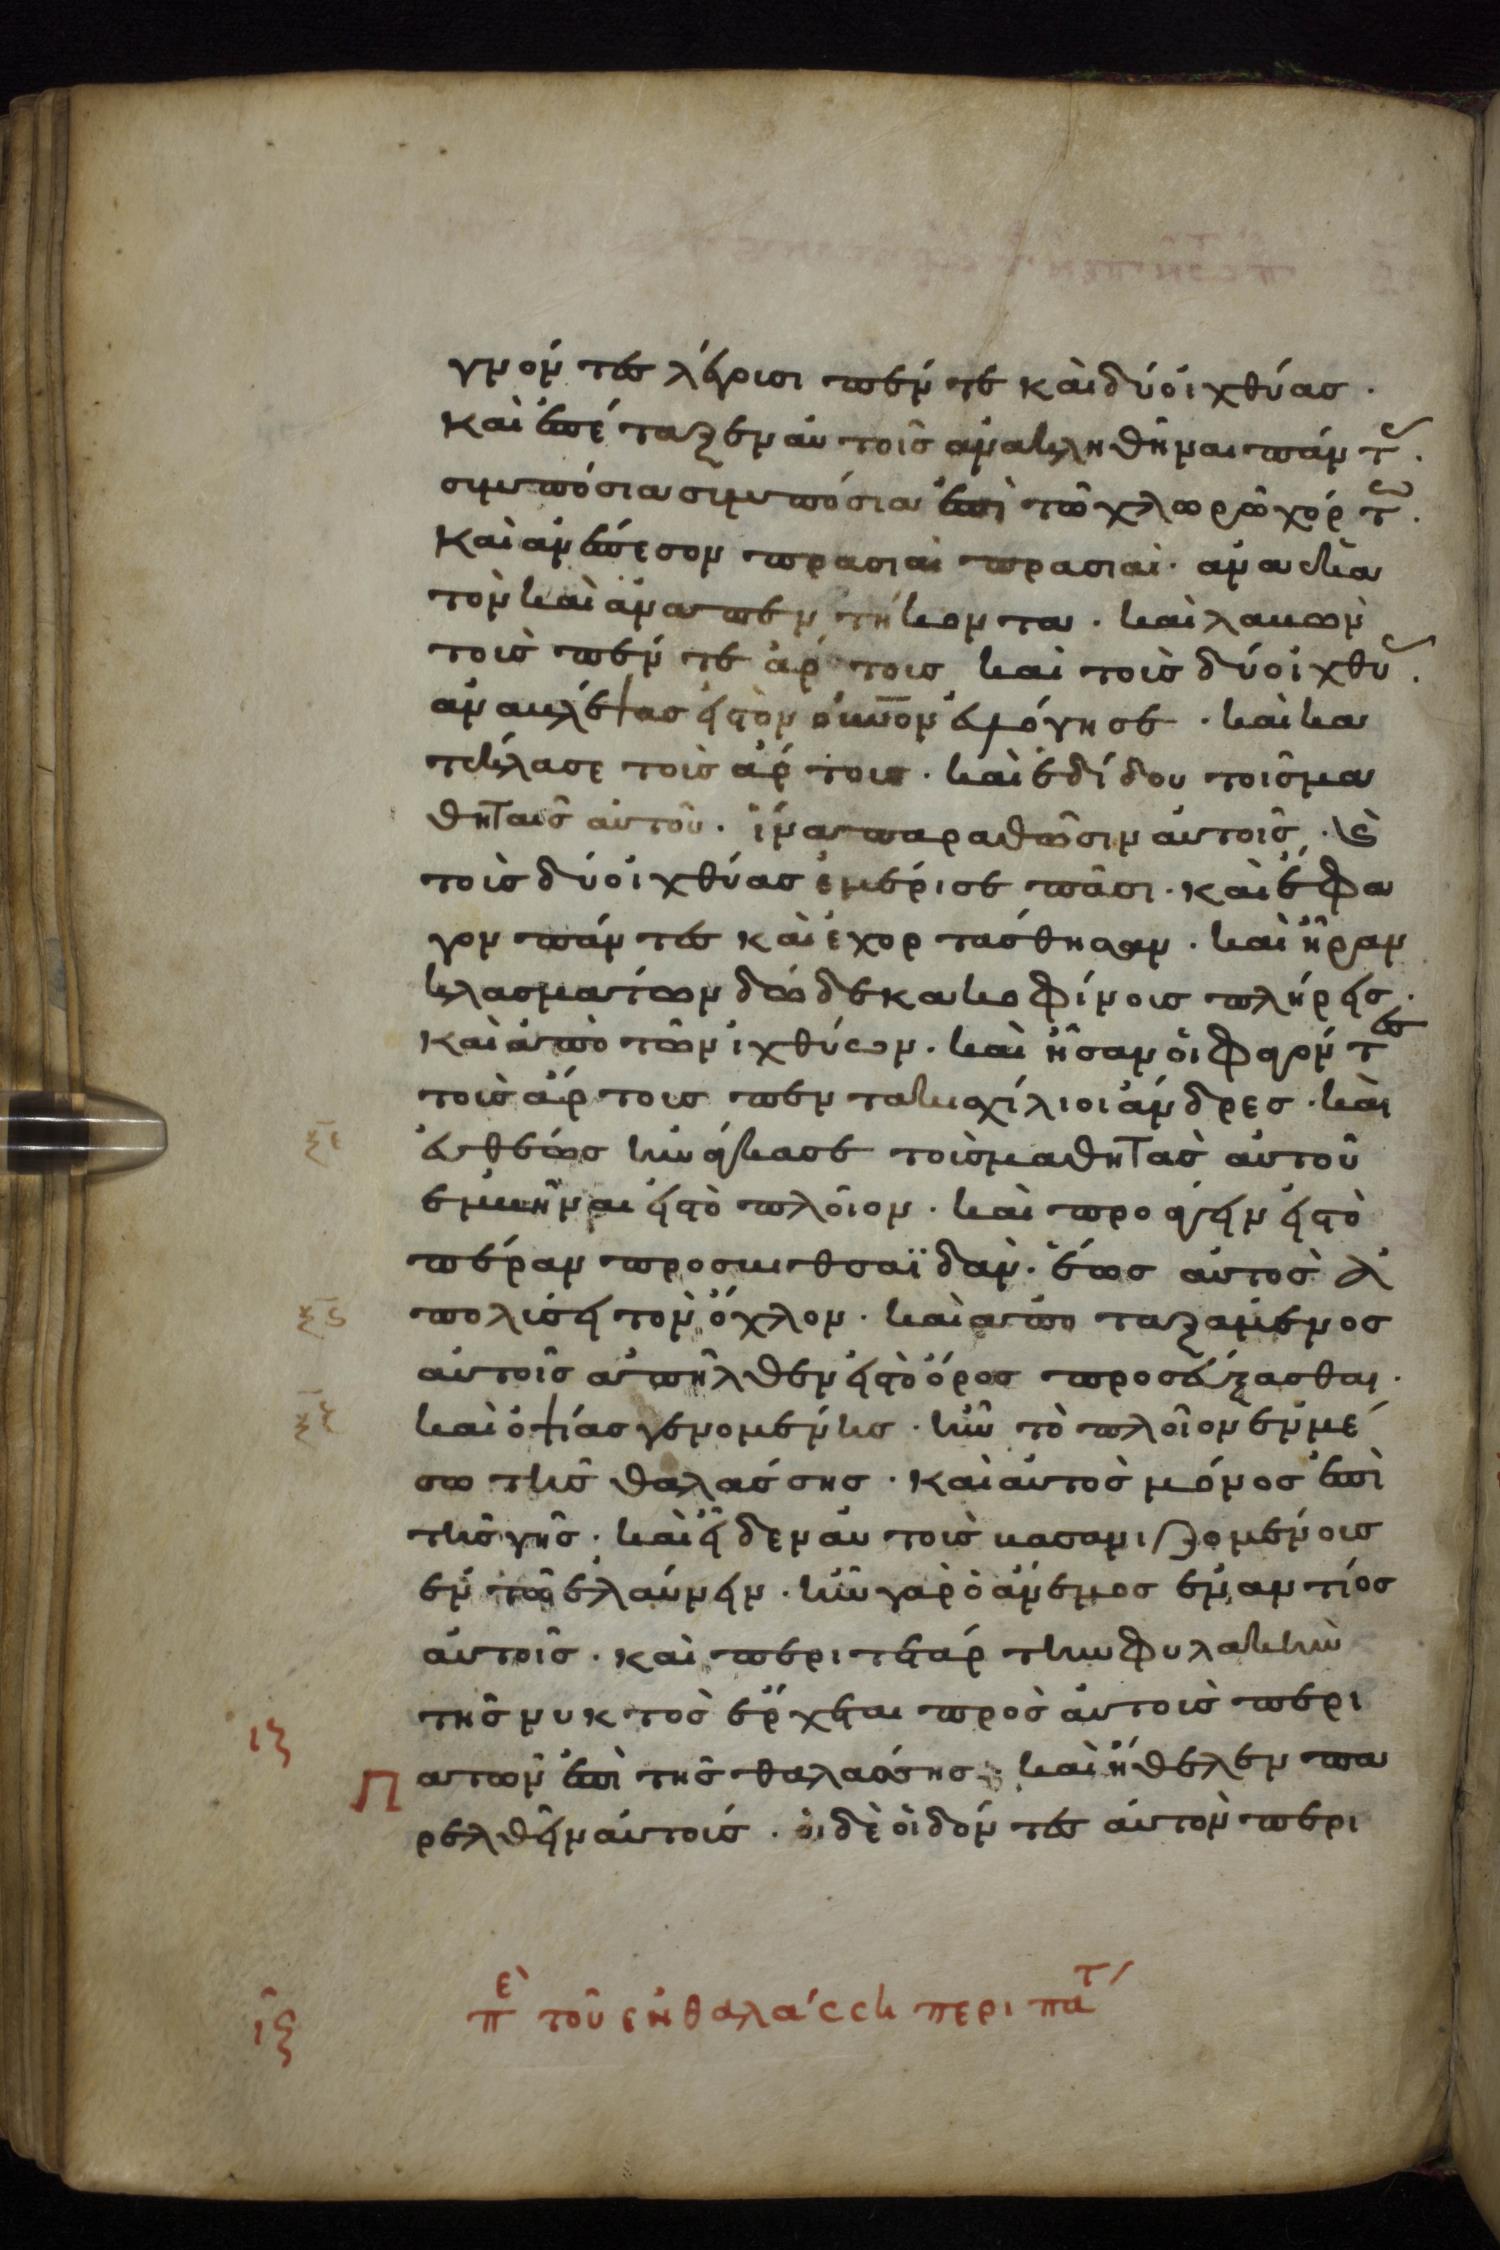 γνόντες λέγουσι πέντε καὶ δύο ἰχθύας.
καὶ ἐπέταξεν αὐτοῖς ἀνακληθῆναι πάντ.
συμπόσια συμπόσια ἐπὶ τῶ χλωρῶ χόρτ.
καὶ ἀνέπεσον πρασιαὶ πρασιαὶ. ἀνὰ ἑκα
τὸν καὶ ἀνὰ πεντήκοντα. καὶ λαβὼν
τοὺς πέντε ἄρτους καὶ τοὺς δύο ἰχθύ.
ἀναβλέψας εἰς τὸν οὐνον εὐλόγησε. καὶ κα
τέκλασε τοὺς ἄρτους. καὶ ἐδίδου τοῖς μα
θηταῖς αὐτοῦ. ἵνα παραθῶσιν αὐτοῖς. καὶ
τοὺς δύο ἰχθύας ἐμέρισε πᾶσι. καὶ ἔφα
γον πάντες καὶ ἐχορτάσθησαν. καὶ ἦραν
κλασμάτων δώδεκα κοφίνους πλήρεις.
καὶ ἀπὸ τῶν ἰχθύων. καὶ ἦσαν οἱ φαγόντες
τοὺς ἄρτους πεντακισχίλιοι ἄνδρες. καὶ
εὐθέως ἠνάγκασε τοὺς μαθητὰς αὐτοῦ
ἐμβῆναι εἰς τὸ πλοῖον. καὶ προάγειν εἰς τὸ
πέραν πρὸς βηθσαϊδάν. ἕως αὐτὸς ἀ
πολύσει τὸν ὄχλον. καὶ ἀποταξάμενος
αὐτοῖς ἀπῆλθεν εἰς τὸ ὄρος προσεύξασθαι.
καὶ ὀψίας γενομένης. ἦν τὸ πλοῖον ἐν μέ
σω τῆς θαλάσσης. καὶ αὐτὸς μόνος ἐπὶ
τῆς γῆς. καὶ εἶδεν αὐτοὺς βασανιζομένους
ἐν τῶ ἐλαύνειν. ἦν γὰρ ὁ ἄνεμος ἐναντίος
αὐτοῖς. καὶ περὶ τετάρτην φυλακὴν
τῆς νυκτὸς ἔρχεται πρὸς αὐτοὺς περι
πατῶν ἐπὶ τῆς θαλάσσης. καὶ ἤθελεν πα
ρελθεῖν αὐτούς. οἱ δὲ ἰδόντες αὐτὸν περι
ξε
ξς
ξζ
ιξ
ιξ πε τοῦ ἐν θαλάσση περιπατ